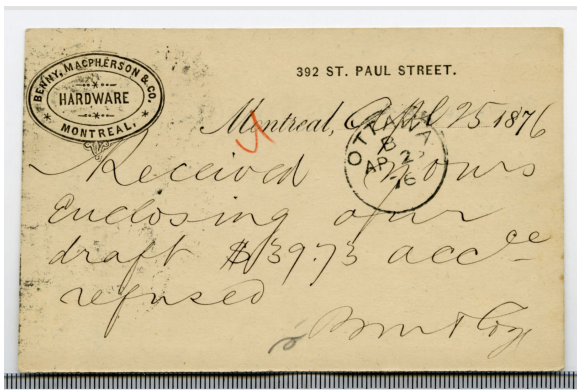 BENNY, MACPHERSON & CO.
HARDWARE
MONTREAL.
392 ST. PAUL STREET.
Montreal, April 25 1876
OTTAWA
AP 2
76
Received yours
enclosing our
draft $139.73 acc^ce
refused